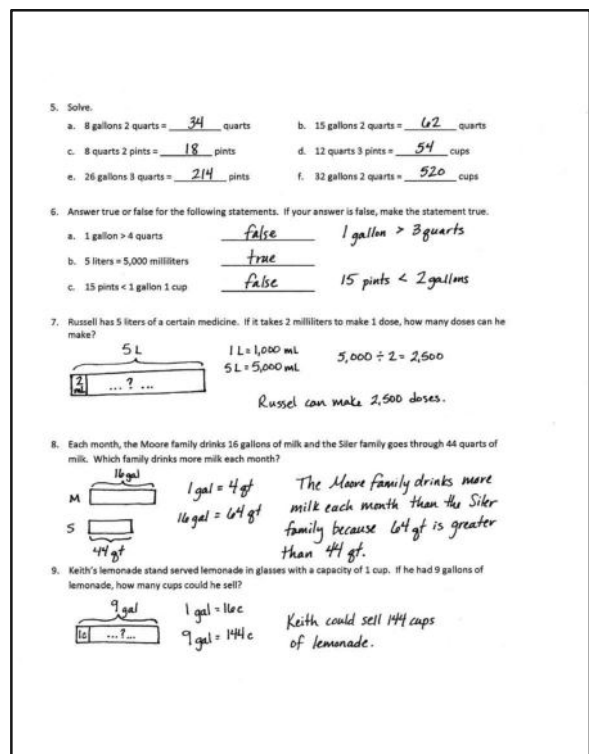 5. Solve.
a. 8 gallons 2 quarts = 34 quarts b. 15 gallons 2 quarts = 62 quarts
c. 8 quarts 2 pints = 18 pints d. 12 quarts 3 pints = 54 cups
e. 26 gallons 3 quarts = 214 pints f. 32 gallons 2 quarts = 520 cups
6. Answer true or false for the following statements. If your answer is false, make the statement true.
a. 1 gallon > 4 quarts false 1 gallon > 3 quarts
b. 5 liters = 5,000 milliliters true
c. 15 pints < 1 gallon 1 cup false 15 pints < 2 gallons
7. Russell has 5 liters of a certain medicine. If it takes 2 milliliters to make 1 dose, how many doses can he
make?
5 L 1 L = 1,000 mL
5 L = 5,000 mL 5,000 ÷ 2 = 2,500
2 mL ... ? ...
Russel can make 2,500 doses.
8. Each month, the Moore family drinks 16 gallons of milk and the Siler family goes through 44 quarts of
milk. Which family drinks more milk each month?
16 gal
M 1 gal = 4 qt The Moore family drinks more
16 gal = 64 qt milk each month than the Siler
S family because 64 qt is greater
44 qt than 44 qt.
9. Keith's lemonade stand served lemonade in glasses with a capacity of 1 cup. If he had 9 gallons of
lemonade, how many cups could he sell?
9 gal 1 gal = 16 c Keith could sell 144 cups
1c ...?... 9 gal = 144 c of lemonade.